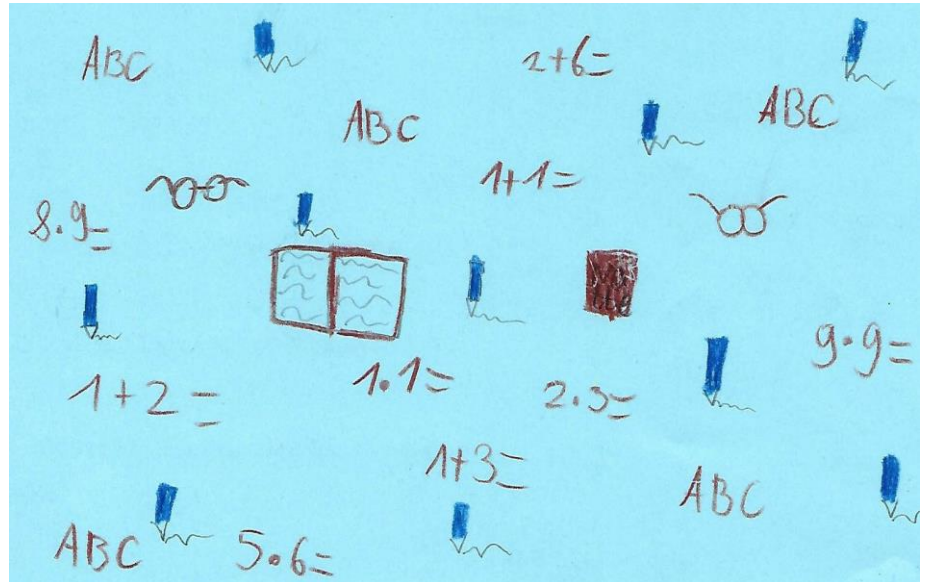 ABC
2+6=
ABC
ABC
1+1=
8.9=
9.9=
1.1=
1+2=
2.3=
1+3=
ABC
ABC
5.6=